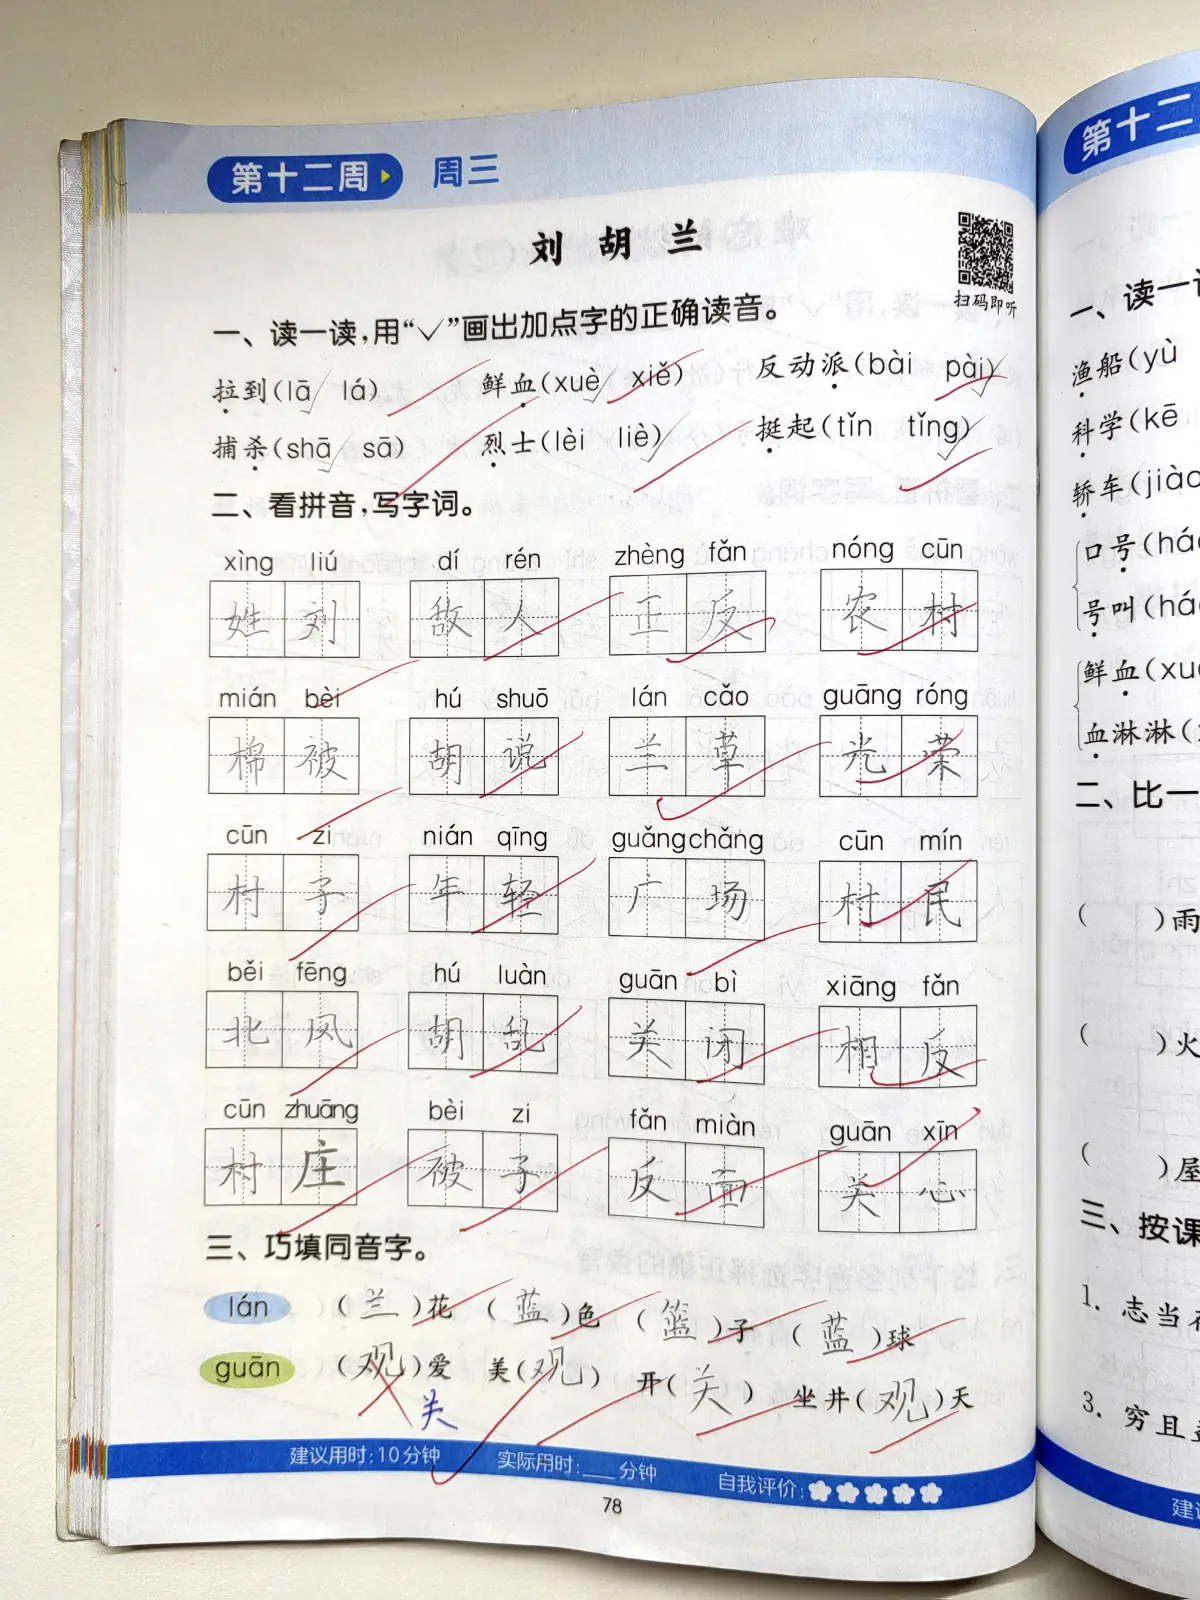 第十二周 周三
刘胡兰
扫码即听
一、读一读,用“✓”画出加点字的正确读音。
拉到(lā✓ lá) 鲜血(xuè✓ xiě) 反动派(bài pài✓)
捕杀(shā✓ sā) 烈士(lèi liè✓) 挺起(tǐn tǐng✓)
二、看拼音,写字词。
xìng liú dí rén zhèng fǎn nóng cūn
姓刘 敌人 正反 农村
mián bèi hú shuō lán cǎo guāng róng
棉被 胡说 兰草 光荣
cūn zi nián qīng guǎng chǎng cūn mín
村子 年轻 广场 村民
běi fēng hú luàn guān bì xiāng fǎn
北风 胡乱 关闭 相反
cūn zhuāng bèi zi fǎn miàn guān xīn
村庄 被子 反面 关心
三、巧填同音字。
lán (兰)花 (蓝)色 (篮)子 (蓝)球
guān (观)爱 美(观) 开(关) 坐井(观)天
关
建议用时:10分钟 实际用时:___分钟 自我评价:
78
第十二
一、读一
渔船(yù
科学(kē
轿车(jiào
口号(há
号叫(há
鲜血(xu
血淋淋(
二、比一
( )雨
( )火
( )屋
三、按课
1. 志当
3. 穷且
建议